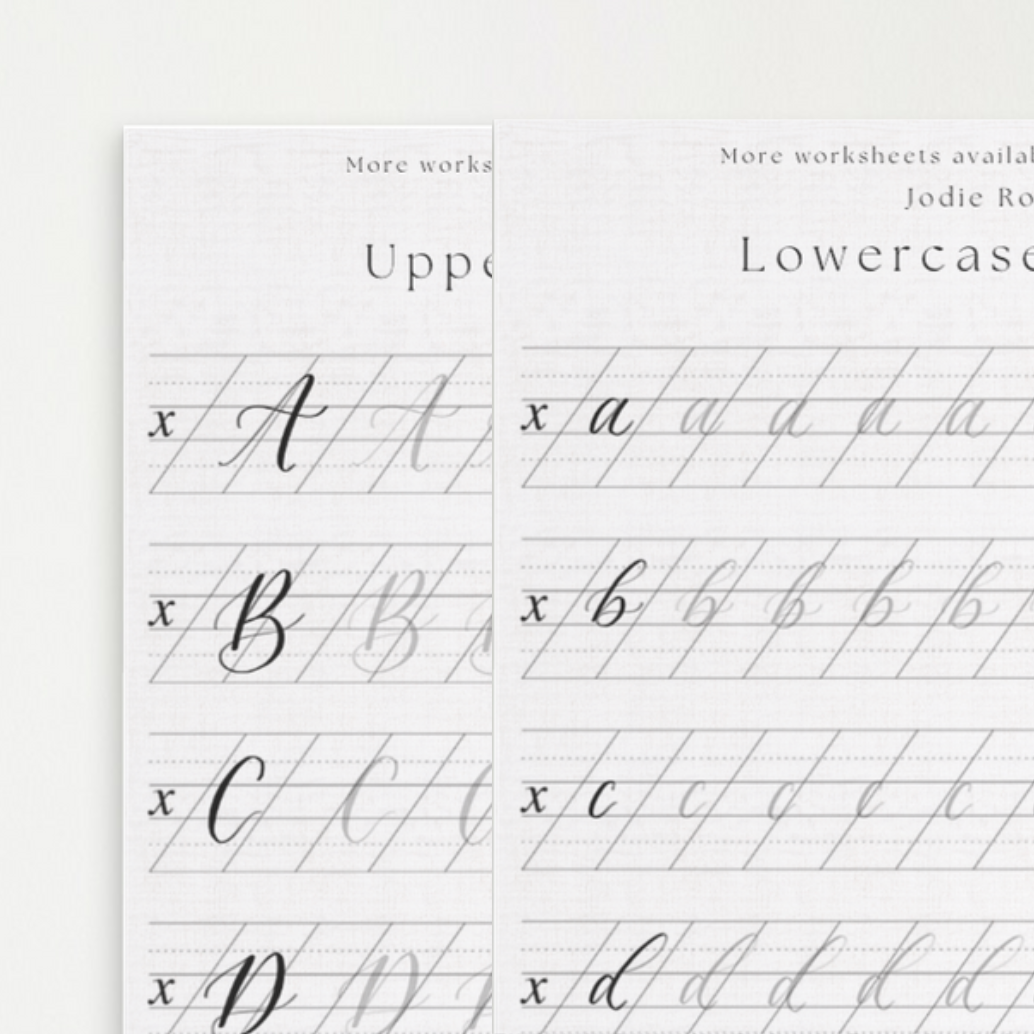 More works
Uppe
x A A
x B B
x C C
x D D
More worksheets availab
Jodie Ro
Lowercase
x a a a a a
x b b b b b
x c c c c c
x d d d d d